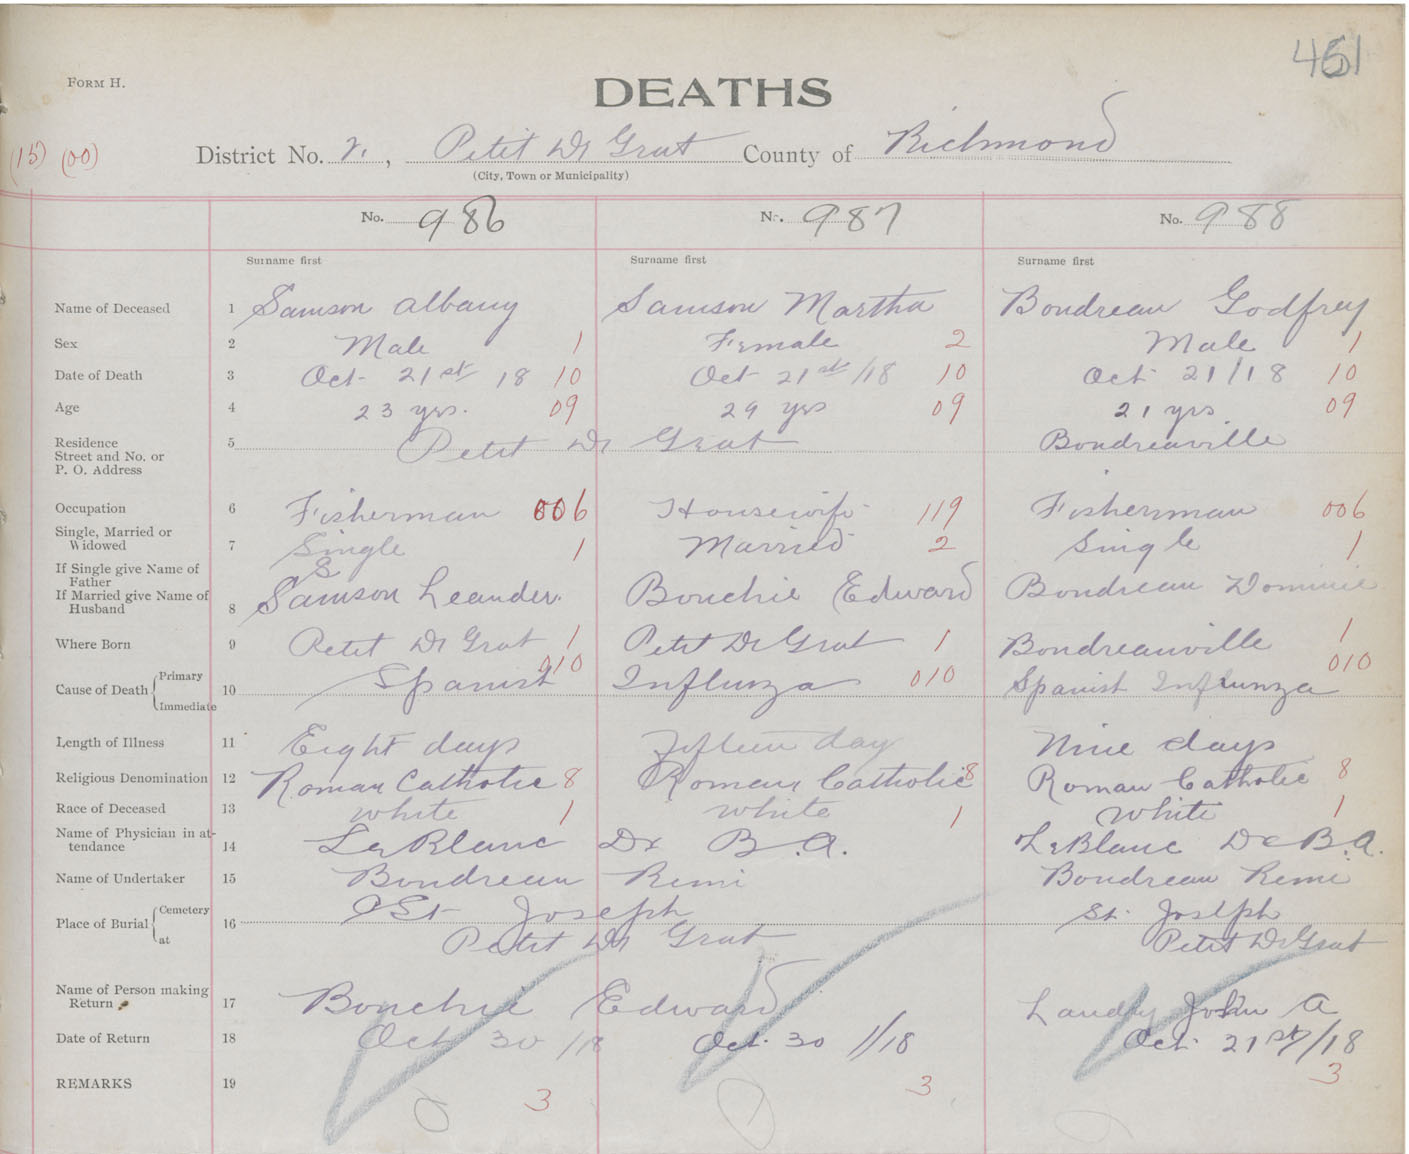 451
FORM H.
DEATHS
(15) (00) District No. 2. , Petit De Grat County of Richmond
(City, Town or Municipality)
No. 986 No. 987 No. 988
Surname first Surname first Surname first
Name of Deceased 1 Samson Albany Samson Martha Boudreau Godfrey
Sex 2 Male 1 Female 2 Male 1
Date of Death 3 Oct. 21st 18 10 Oct 21st/18 10 Oct 21/18 10
Age 4 23 yrs. 09 29 yrs 09 21 yrs 09
Residence 5 Petit De Grat Boudreauville
Street and No. or
P. O. Address
Occupation 6 Fisherman 006 Housewife 119 Fisherman 006
Single, Married or
Widowed 7 Single 1 Married 2 Single 1
If Single give Name of
Father
If Married give Name of
Husband 8 Samson Leander. Bouchie Edward Boudreau Dominic
Where Born 9 Petit De Grat 1 Petit De Grat 1 Boudreauville 1
Cause of Death Primary 10 Spanish 010 Influnza 010 Spanish Influnza 010
Immediate
Length of Illness 11 Eight days Fifteen day Nine days
Religious Denomination 12 Roman Catholic 8 Roman Catholic 8 Roman Catholic 8
Race of Deceased 13 White 1 White 1 White 1
Name of Physician in at-
tendance 14 LeBlanc Dr B.A. LeBlanc Dr B.A.
Name of Undertaker 15 Boudreau Remi Boudreau Remi
Place of Burial Cemetery 16 St Joseph St. Joseph
at Petit De Grat Petit De Grat
Name of Person making
Return 17 Bouchie Edward Landry John A
Date of Return 18 Oct 30/18 Oct. 30/18 Oct. 21st/18
REMARKS 19 3 3 3